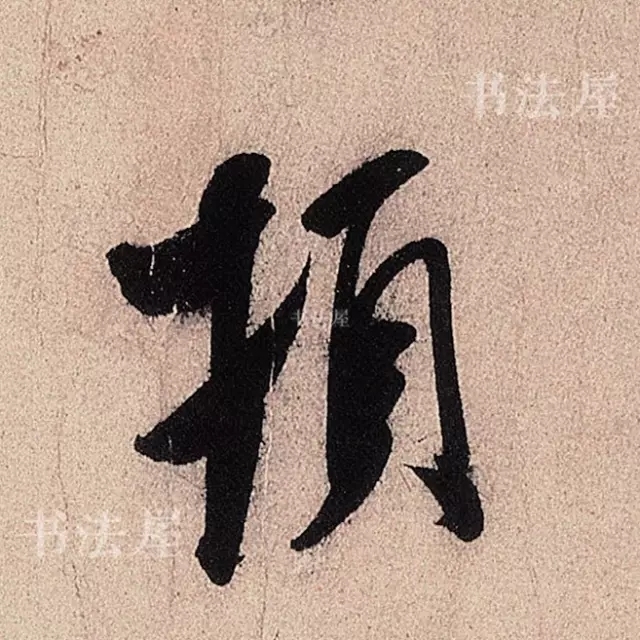 书法屋
頓
书法屋
书法屋